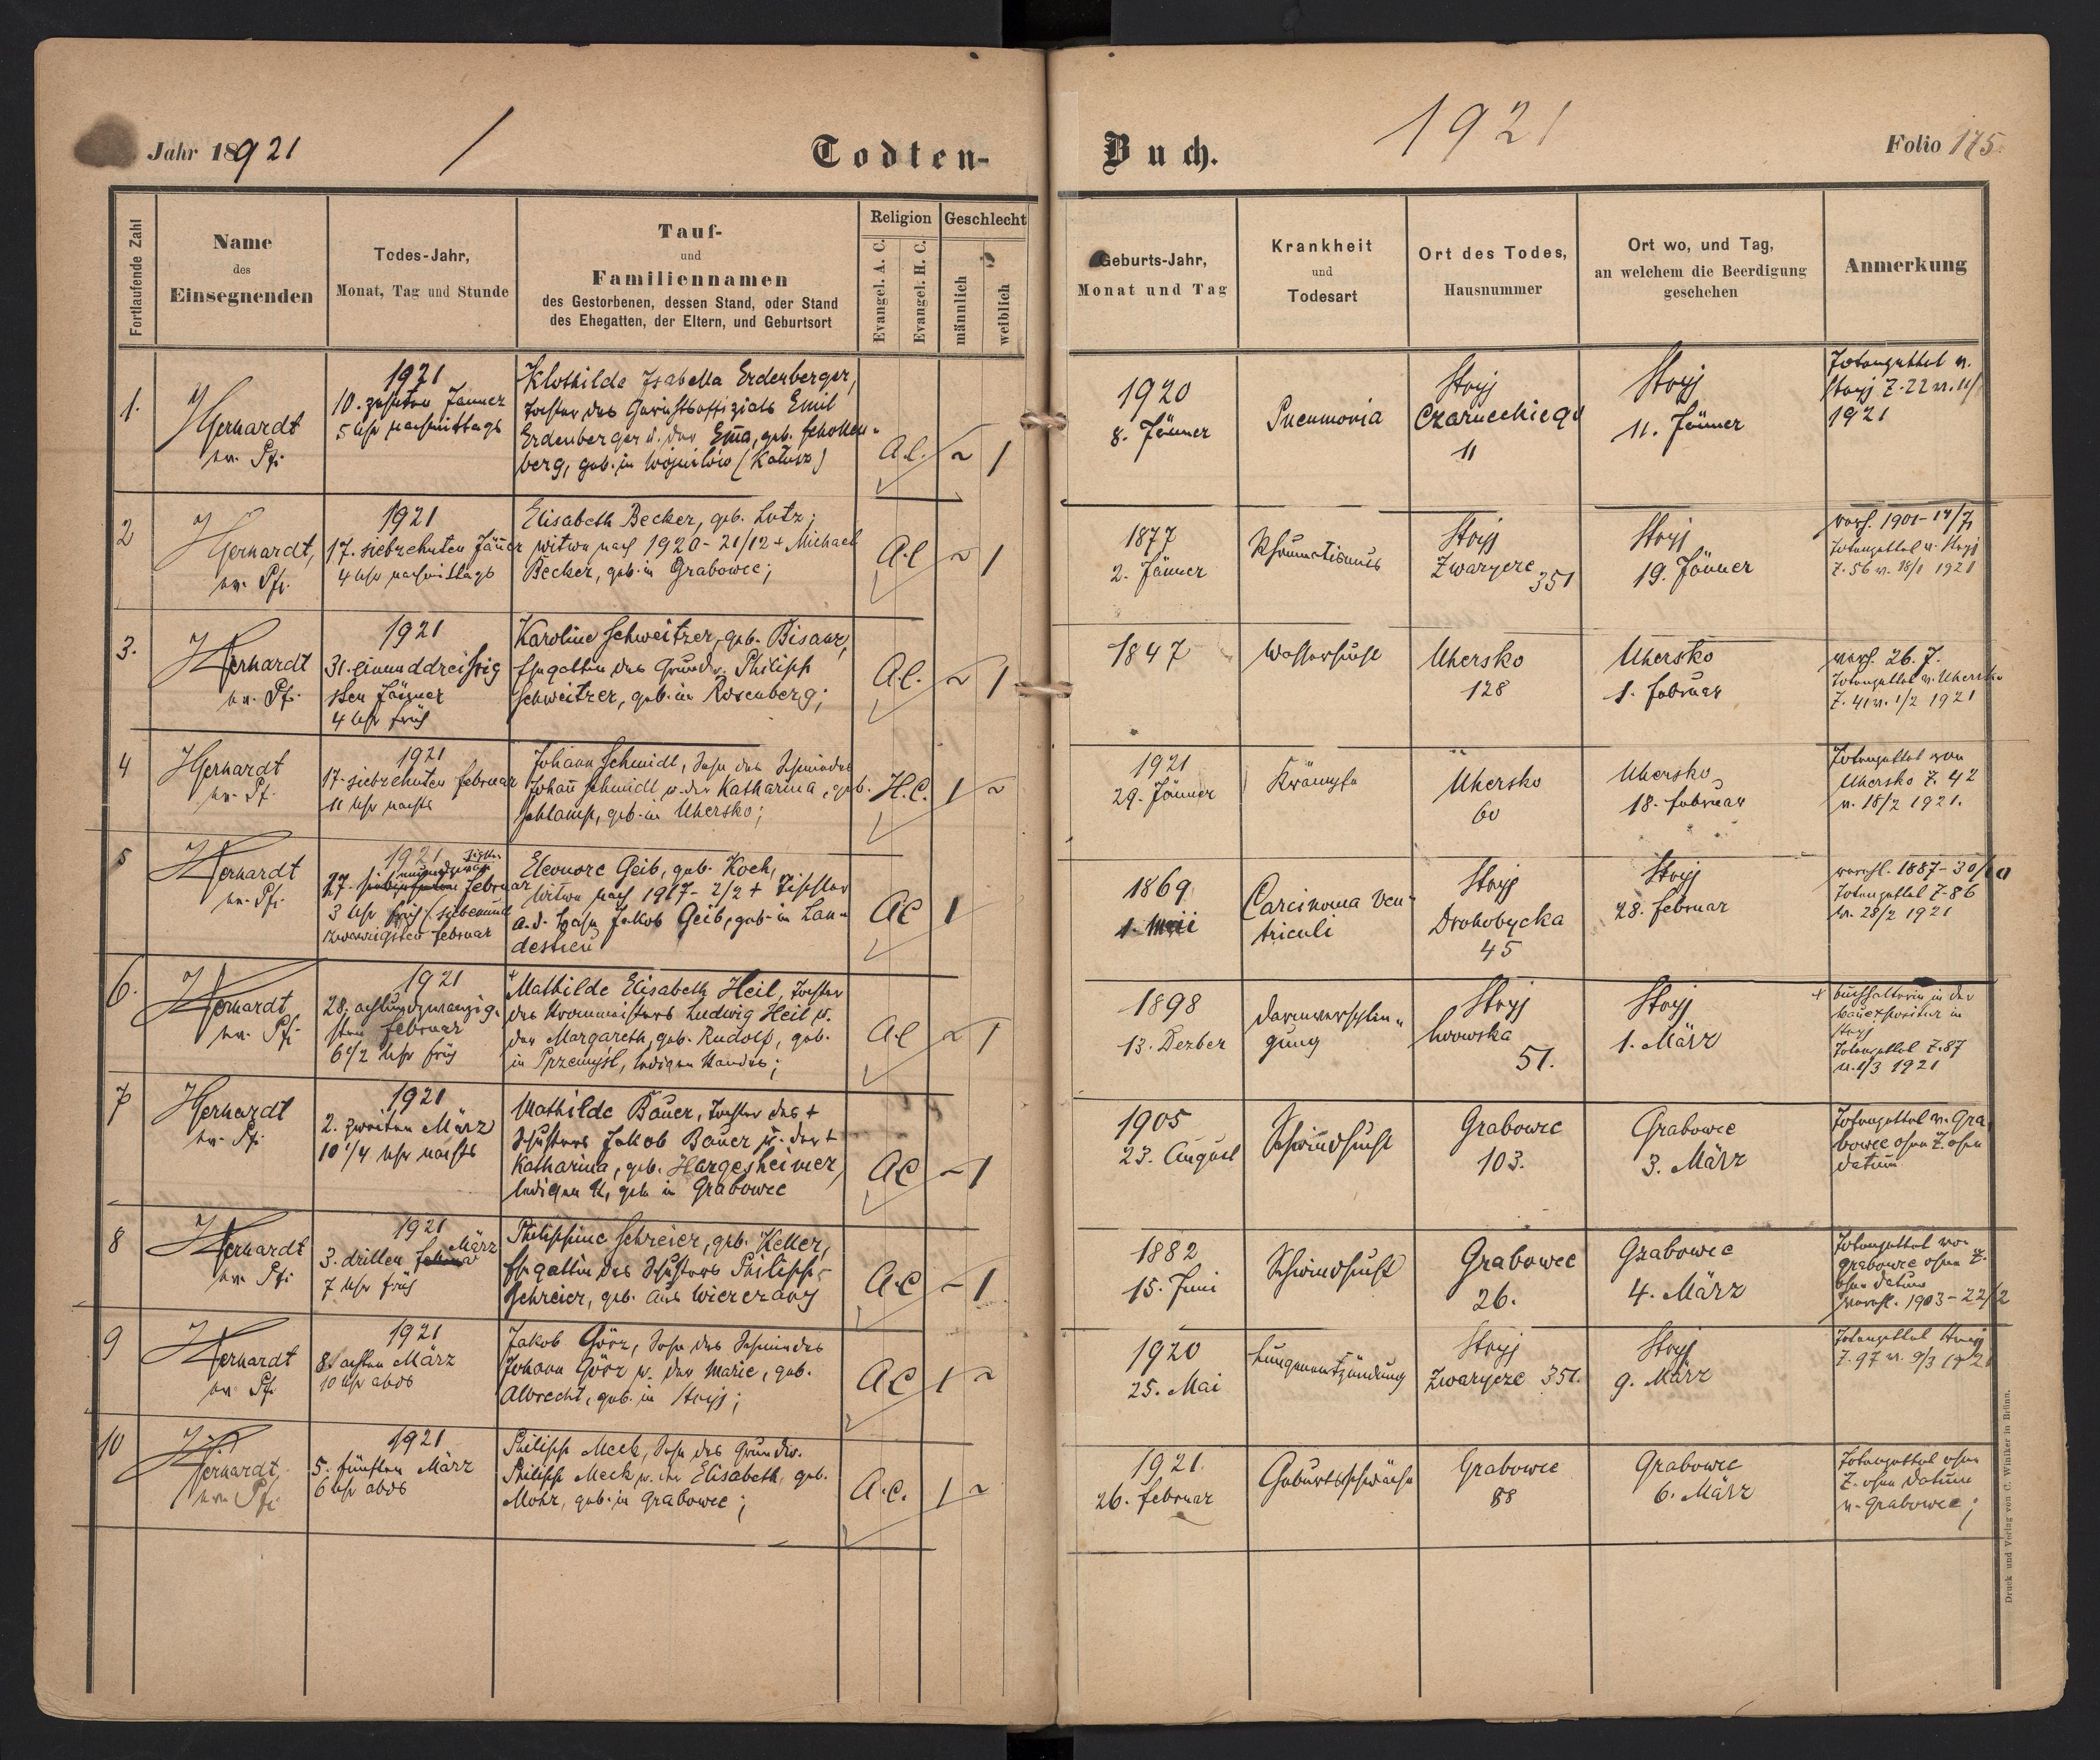 Jahr 18921
/
Todten-
Fortlaufende Zahl
Name
des
Einsegnenden
Todes-Jahr,
Monat, Tag und Stunde
Tauf-
und
Familiennamen
des Gestorbenen, dessen Stand, oder Stand
des Ehegatten, der Eltern, und Geburtsort
Religion
Evangel. A. C.
Evangel. H. C.
Geschlecht
männlich
weiblich
Buch.
1921
Folio 175.
Geburts-Jahr,
Monat und Tag
Krankheit
und
Todesart
Ort des Todes,
Hausnummer
Ort wo, und Tag,
an welchem die Beerdigung
geschehen
Anmerkung
1.
Gerhardt
ev. Pfr.
1921
10. zehnten Jänner
5 Uhr nachmittags
Klothilde Isabella Erdenberger,
Tochter des Gerichtsoffizials Emil
Erdenberger u. der Em̄a, geb. Schollen-
berg, geb. in Wojnilów (Kalusz)
A.C. ~ 1
1920
8. Jänner
Pneumonia
Stryj
Czarneckiego
11
Stryj
11. Jänner
Totenzettel v.
Stryj Z. 22 v. 11/1
1921
2
Gerhardt,
ev. Pfr.
1921
17. siebzehnten Jän̄er
4 Uhr nachmittags
Elisabeth Becker, geb. Lutz;
Witwe nach 1920 - 21/12 + Michael
Becker, geb. in Grabowce;
A.C ~ 1
1877
2. Jänner
Rheumatismus
Stryj
Zwarycze 351
Stryj
19. Jänner
verh. 1901 - 14/7,
Totenzettel v. Stryj
Z. 56 v. 18/1 1921
3.
Gerhardt
ev. Pfr.
1921
31. einunddreißig
sten Jänner
4 Uhr früh
Karoline Schweitzer, geb. Bisanz,
Ehegattin des Grundw. Philipp
Schweitzer, geb. in Rosenberg;
A.C. ~ 1
1847
Wassersucht
Uhersko
128
Uhersko
1. Februar
verh. 26. J.
Totenzettel v. Uhersko
Z. 41 v. 1/2 1921
4
Gerhardt
ev. Pf.
1921
17. siebzehnten Februar
11 Uhr nachts
Johann Schmidt, Sohn des Schmiedes
Johan̄ Schmidt u. der Katharina, geb.
Schlamp, geb. in Uhersko;
H.C. 1 ~
1921
29. Jänner
Krämpfe
Uhersko
60
Uhersko
18. Februar
Totenzettel von
Uhersko Z. 42
v. 18/2 1921.
5
Gerhardt
ev. Pfr.
1921
27. Februar
3 Uhr früh (siebenund
zwanzigsten Februar
Eleonore Geib, geb. Koch,
Witwe nach 1917 - 2/2 + Tischler
a. d. Bahn Jakob Geib, geb. in Lan-
destreu
AC 1
1869
1. Mai
Carcinoma ven-
triculi
Stryj
Drohobycka
45
Stryj
28. Februar
verehl. 1887 - 30/10
Totenzettel Z. 86
v. 28/2 1921
6.
Gerhardt
ev. Pfr
1921
28. achtundzwanzig-
sten Februar
6 1/2 Uhr früh
+ Mathilde Elisabeth Heil, Tochter
des Ludwig Heil u.
der Margareth, geb. Rudolf, geb.
in Przemyśl, ledigen Standes;
A.C ~ 1
1898
13. Dezber
Darmverschlin-
gung
Stryj
Lwowska
51.
Stryj
1. März
+ Buchhalterin in der
Bauexpositur in
Stryj
Totenzettel Z. 87
v. 1/3 1921
7
Gerhardt
ev. Pfr.
1921
2. zweiten März
10 1/4 Uhr nachts
Mathilde Bauer, Tochter des +
Schusters Jakob Bauer u. der +
Katharina, geb. Hargesheimer,
ledigen St, geb. in Grabowce
AC ~ 1
1905
23. August
Schwindsucht
Grabowce
103.
Grabowce
3. März
Totenzettel v. Gra
bowce ohne Z. ohne
Datum
8
Gerhardt
ev. Pfr
1921
3. dritten Februar März
7 Uhr früh
Philippine Schreier, geb. Keller,
Ehegattin des Schusters Philipp
Schreier, geb. aus Wiererany
A.C ~ 1
1882
15. Juni
Schwindsucht
Grabowce
26.
Grabowce
4. März
Totenzettel von
Grabowce ohne Z.
ohne Datum
verehl. 1903 - 22/2
9
Gerhardt
ev. Pfr
1921
8. achten März
10 Uhr abds
Jakob Görz, Sohn des Schmiedes
Johann Görz u. der Marie, geb.
Albrecht, geb. in Stryj;
AC 1 ~
1920
25. Mai
Lungenentzündung
Stryj
Zwarycze 351.
Stryj
9. März
Totenzettel Stryj
Z. 97 v. 9/3 1921
10
Gerhardt
ev. Pfr
1921
5. fünften März
6 Uhr abds
Philipp Meck, Sohn des Grundw.
Philipp Meck u. der Elisabeth, geb.
Mohr, geb. in Grabowce;
A.C. 1 ~
1921.
26. Februar
Geburtsschwäche
Grabowce
88
Grabowce
6. März
Totenzettel ohne
Z. ohne Datum
v. Grabowce;
Druck und Verlag von C. Winiker in Brünn.